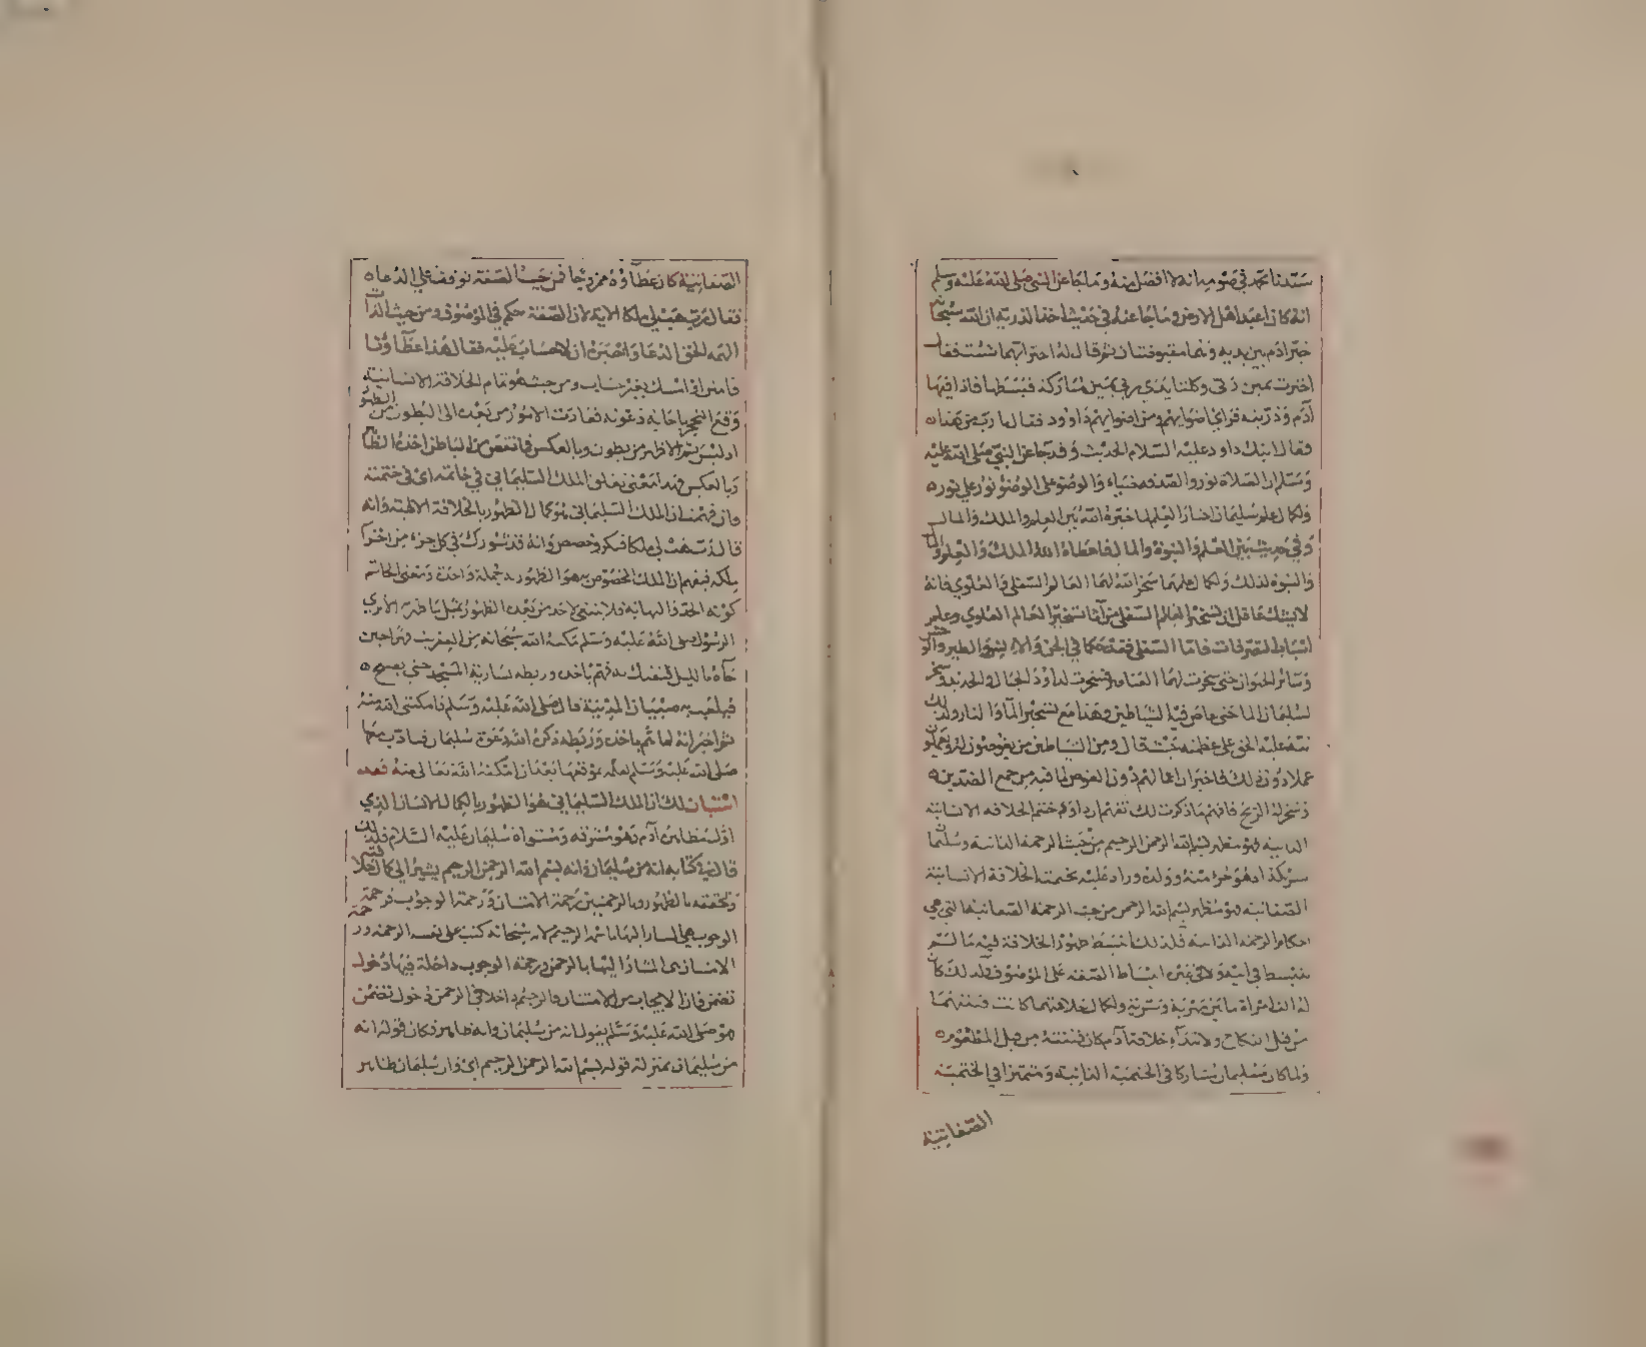 سيدنا محمد في صومه انه لا افضل منه وما جا عن النبي صلى الله عليه وسلم
انه كان اعبد اهل الارض وما جا عنه في حديث اخذ الذرية ان الله سبحانه
خير ادم بين يديه وهما مقبوضتان ثم قال له اختر ايهما شئت فقال
اخترت يمين ربي وكلتا يدي ربي يمين مباركة فبسطها فاذا فيها
آدم وذريته فراي اضوايهم ومن اضوايهم داوود فقال يا رب من هذا
فقال ابنك داود عليه السلام الحديث وقد جا عن النبي صلى الله عليه
وسلم ان الصلاة نور والصدقة ضياء والوضو على الوضو نور علي نور
ولكمال علم سليمان اختار العلم لما خيره الله بين العلم والملك والمال
وفي حديث بين العلم والنبوة والمال فاعطاه الله الملك والعلم والمال
والنبوة لذلك ولكمال علمهما سخر الله لهما العالم السفلي والعلوي فانه
لا يشك عاقل ان تسخير العالم السفلي من آثار تسخير العالم العلوي وعلم
انبساط التصرفات فاما السفلي فقد حكما في الجن والانس والطير والوحش
وسائر الحيوان حتى سخرت لهما العناصر فسخرت لداود الجبال والحديد وسخر
لسليمان الما حتى غاص فيه الشياطين وهذا مع تسخير الما والنار ولذلك
نبه عليه الحق على عظمته حيث قال ومن الشياطين من يغوصون له ويعملون
عملا دون ذلك فاخبر ان اعمالهم دون الغوص لما فيه من جمع الضدين
وسخر له الريح فافهم ما ذكرت لك تفهم ان داود ختم الخلافة الانسانية
الذاتية فهو مظهر بسم الله الرحمن الرحيم من حيث الرحمة الذاتية وسليمان
سر كذا اذ هو جزء منه وولده وزاد عليه بختمه الخلافة الانسانية
الصفاتية فهو مظهر بسم الله الرحمن من حيث الرحمة الصفاتية التي هي
احكام الرحمة الذاتية فلذلك انبسط ظهور الخلافة فيه ما لم
ينبسط في ابيه ولا في غيره انبساط الصفة على الموصوف فلذلك كان
له الف امراة ما بين مهرية وسرية ولكمال خلافتهما كانت فتنتهما
من قبل النكاح ولابتداء خلافة آدم كان فتنته من قبل المطعوم
ولما كان سليمان مشاركا في الختمية الذاتية ومتميزا في الختمية
الصفاتية
الصفاتية كان عطاؤه ممزوجا فمن حيث الصفة توقف على الدعاء
فقال رب هب لي ملكا الاية لان الصفة حكم في الموصوف ومن حيث الذات
الهمه الحق الدعا واخبره ان لا حساب عليه فقال هذا عطاؤنا
فامنن او امسك بغير حساب ومن حيث هو تمام الخلافة الانسانية
وقع التحجير باجابة دعوته فعادت الامور من بعده الى البطون من الظهور
اذ ليس ثم الا ظهر من بطون وبالعكس فما نقص من الباطن اخذه الظاهر
وبالعكس فهذا معنى تعلق الملك السليماني في خاتمه اي في ختمته
وان فهمت ان الملك السليماني هو كمال الظهور بالخلافة الالهية وانه
قال رب هب لي ملكا فنكر وخصص وانه قد شورك في كل جزء من اجزا
ملكه فيفهم ان الملك المخصوص به هو الظهور بجملة واحدة ومعنى الخاتم
كونه الحد والنهاية فلا ينبغي لاحد من بعده الظهور بمثل ما ظهر به الا ترى
الرسول صلى الله عليه وسلم مكنه الله سبحانه من العفريت فهم حين
جآه بالليل ليفتك به فهم باخذه وربطه بسارية المسجد حتى يصبح
فيلعب به صبيان المدينة قال صلى الله عليه وسلم فامكنني الله منه
ثم اخبر انه لما هم باخذه وربطه ذكر الله دعوة سليمان فتادب معها
صلى الله عليه وسلم لعلمه بموقعها بعد ان امكنه الله تعالى منه فقد
استبان لك ان الملك السليماني هو الظهور بالكمال للانسان الذي
اول مظاهره آدم وهو مشرقه ومستواه سليمان عليه السلام فلذلك
قال في كتابه انه من سليمان وانه بسم الله الرحمن الرحيم يشير الي كمال الخلافة
وتحققه بالظهور وبالرحمتين رحمة الامتنان ورحمة الوجوب فرحمة
الوجوب هي المشار اليها باسمه الرحيم لانه سبحانه كتب على نفسه الرحمة ورحمة
الامتنان هي المشار اليها بالرحمن ورحمة الوجوب داخلة فيها دخول
تضمن فان الايجاب من الامتنان والرحيم داخل في الرحمن دخول تضمن
هو صلى الله عليه وسلم يقول انه من سليمان وانه ظاهر فكان قوله انه
من سليمان بمنزلة قوله بسم الله الرحمن الرحيم اي وان سليمان ظاهر